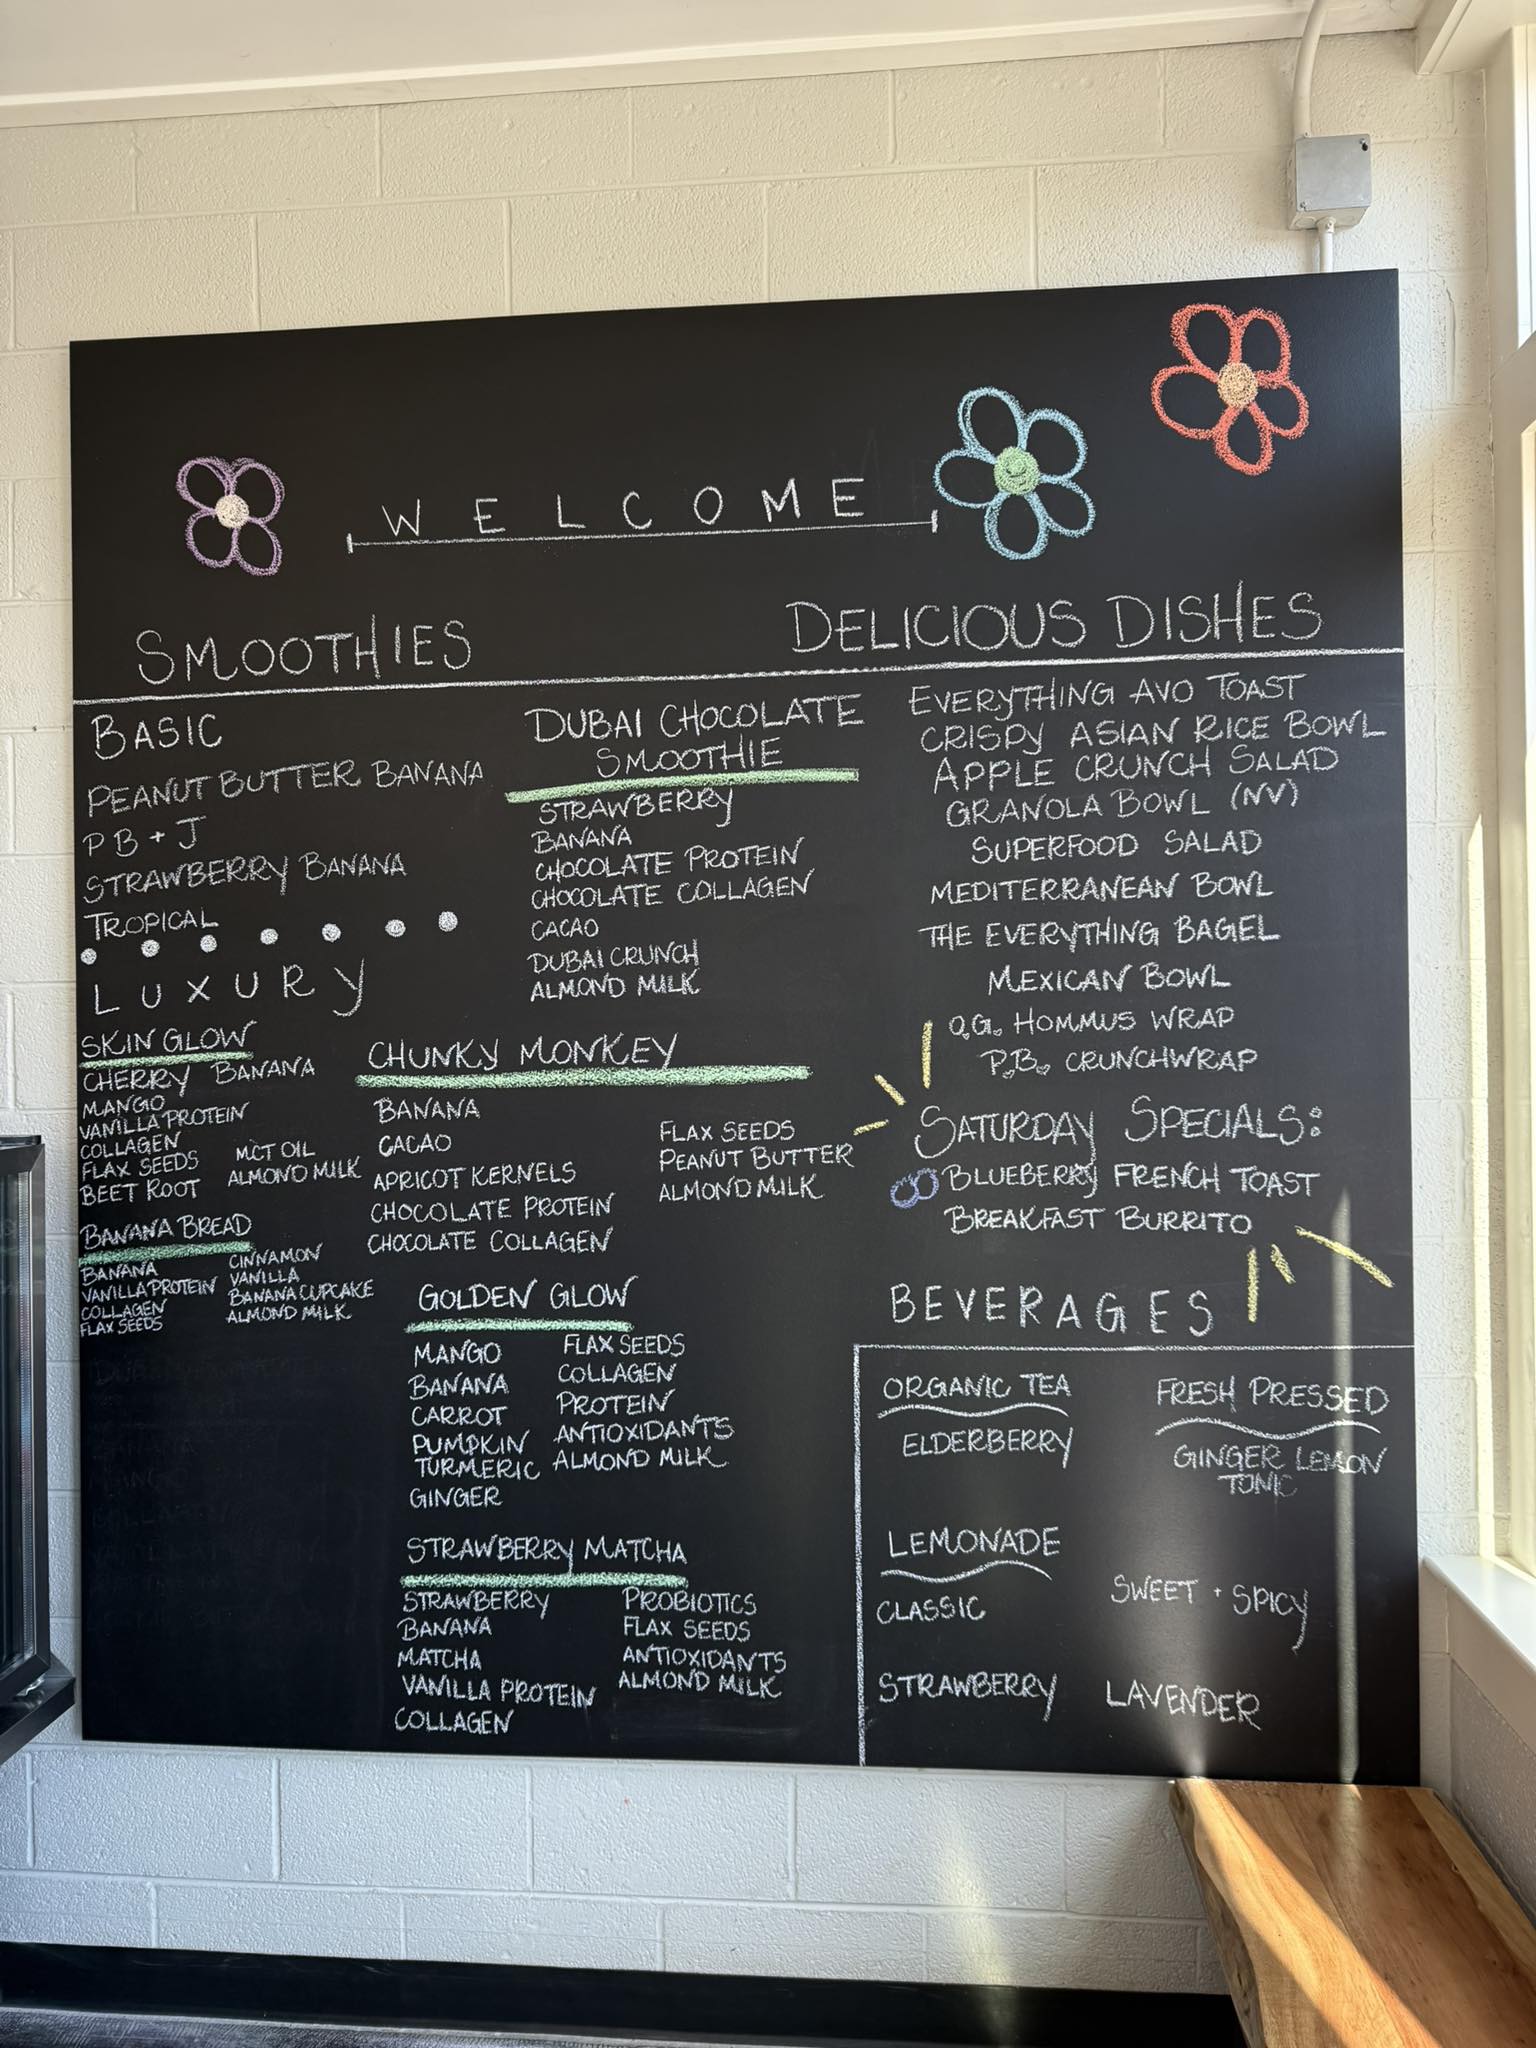 WELCOME
SMOOTHIES
BASIC
PEANUT BUTTER BANANA
PB + J
STRAWBERRY BANANA
TROPICAL
LUXURY
SKIN GLOW
CHERRY BANANA
MANGO
VANILLA PROTEIN
COLLAGEN
FLAX SEEDS
BEET ROOT
MCT OIL
ALMOND MILK
BANANA BREAD
BANANA
VANILLA PROTEIN
COLLAGEN
FLAX SEEDS
CINNAMON
VANILLA
BANANA CUPCAKE
ALMOND MILK
DUBAI CHOCOLATE
SMOOTHIE
STRAWBERRY
BANANA
CHOCOLATE PROTEIN
CHOCOLATE COLLAGEN
CACAO
DUBAI CRUNCH
ALMOND MILK
CHUNKY MONKEY
BANANA
CACAO
APRICOT KERNELS
CHOCOLATE PROTEIN
CHOCOLATE COLLAGEN
FLAX SEEDS
PEANUT BUTTER
ALMOND MILK
GOLDEN GLOW
MANGO
BANANA
CARROT
PUMPKIN
TURMERIC
GINGER
FLAX SEEDS
COLLAGEN
PROTEIN
ANTIOXIDANTS
ALMOND MILK
STRAWBERRY MATCHA
STRAWBERRY
BANANA
MATCHA
VANILLA PROTEIN
COLLAGEN
PROBIOTICS
FLAX SEEDS
ANTIOXIDANTS
ALMOND MILK
DELICIOUS DISHES
EVERYTHING AVO TOAST
CRISPY ASIAN RICE BOWL
APPLE CRUNCH SALAD
GRANOLA BOWL (NV)
SUPERFOOD SALAD
MEDITERRANEAN BOWL
THE EVERYTHING BAGEL
MEXICAN BOWL
O.G. HOMMUS WRAP
P.B. CRUNCHWRAP
SATURDAY SPECIALS:
BLUEBERRY FRENCH TOAST
BREAKFAST BURRITO
BEVERAGES
ORGANIC TEA
ELDERBERRY
FRESH PRESSED
GINGER LEMON
TONIC
LEMONADE
CLASSIC
SWEET + SPICY
STRAWBERRY
LAVENDER